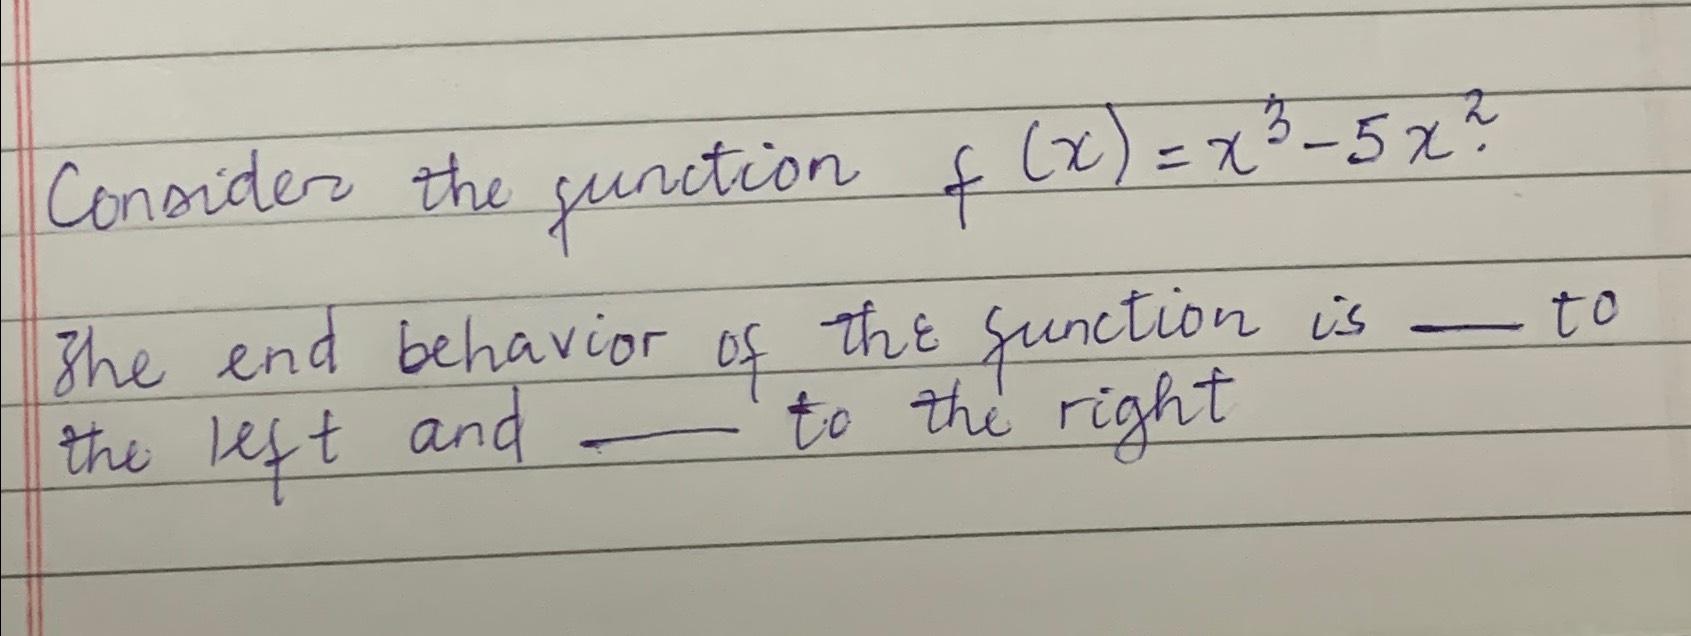 Consider the function f(x) = x³ - 5x².
The end behavior of the function is __ to
the left and __ to the right